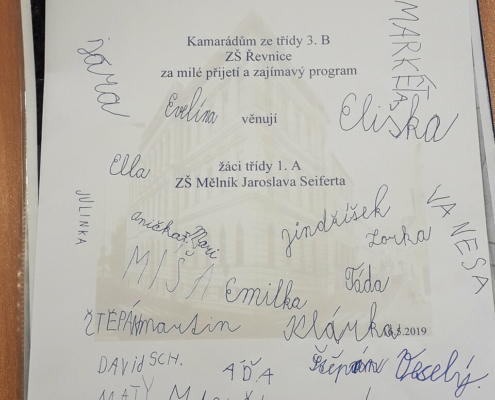 MARKÉTA
Jára
Kamarádům ze třídy 3. B
ZŠ Řevnice
za milé přijetí a zajímavý program
Evelína
věnují
Eliška
Ella
žáci třídy 1. A
ZŠ Mělník Jaroslava Seiferta
JULINKA
VANESA
Anička Š.
Mari
Jindříšek
Lorka
MIŠA
Emilka
Táda
ŽTĚPÁN
martin
Klárka
.5.2019
DAVID SCH.
ÁĎA
Štěpán Veselý.
MATY